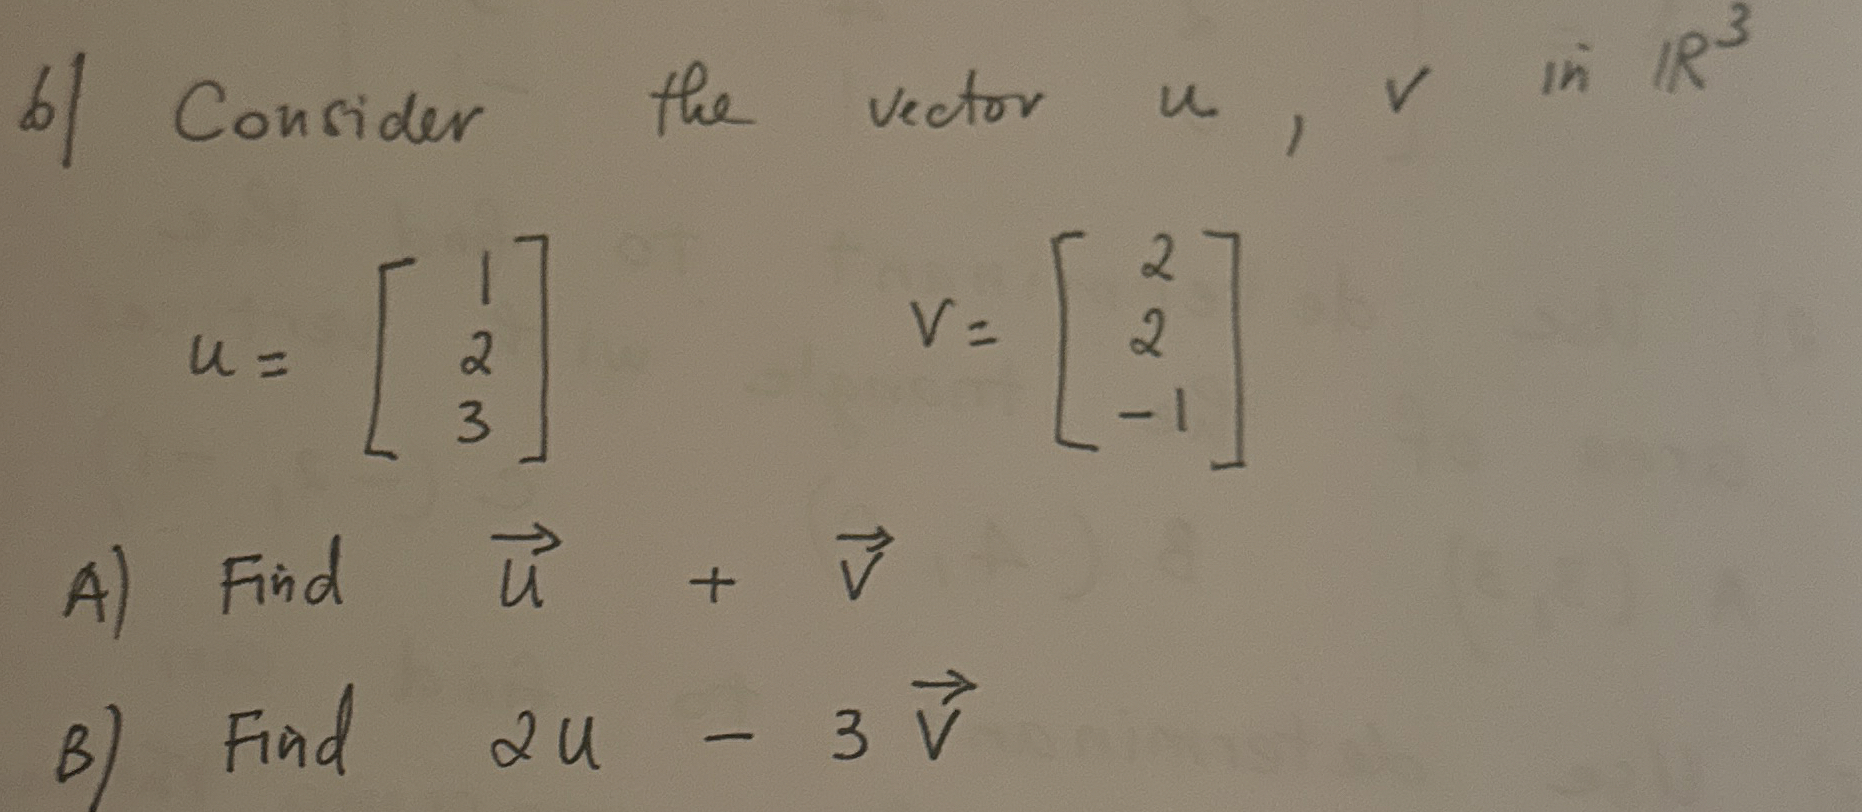 b) Consider the vector u, v in ℝ³
u = [1 2 3] v = [2 2 -1]
A) Find u⃗ + v⃗
B) Find 2u - 3v⃗